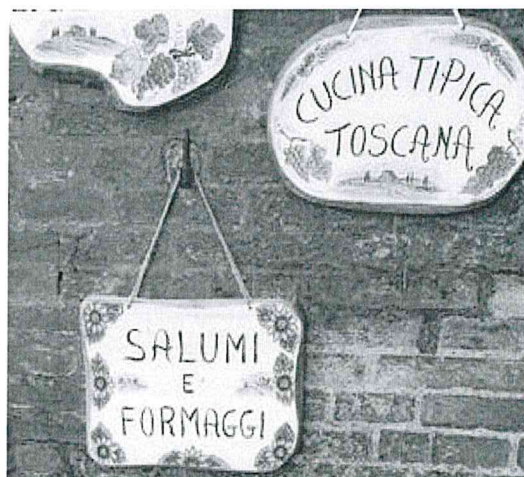 CUCINA TIPICA
TOSCANA
SALUMI
E
FORMAGGI